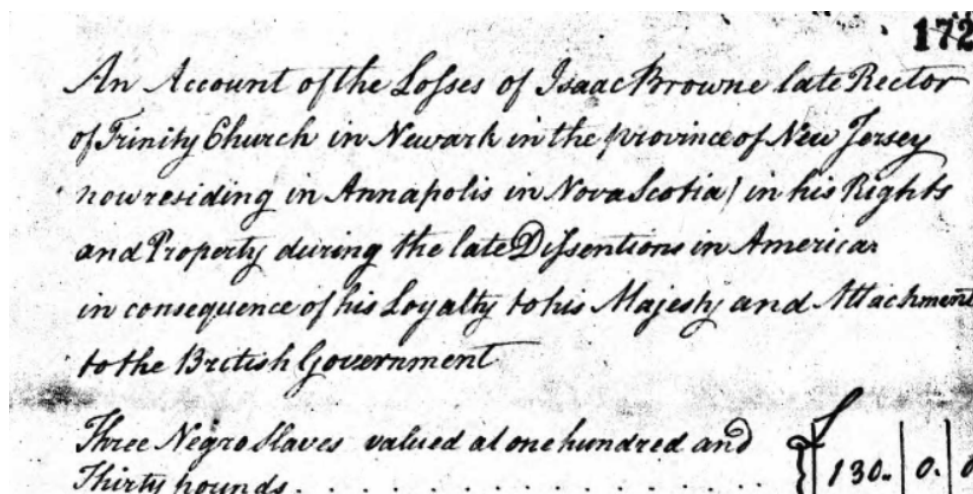 172
An Account of the Losses of Isaac Browne late Rector
of Trinity Church in Newark in the province of New Jersey
now residing in Annapolis in Nova Scotia / in his Rights
and Property during the late Dissentions in America
in consequence of his Loyalty to his Majesty and Attachment
to the British Government
Three Negro Slaves valued at one hundred and
Thirty pounds . . . . . . . . . . . . . { £ 130. 0. 0